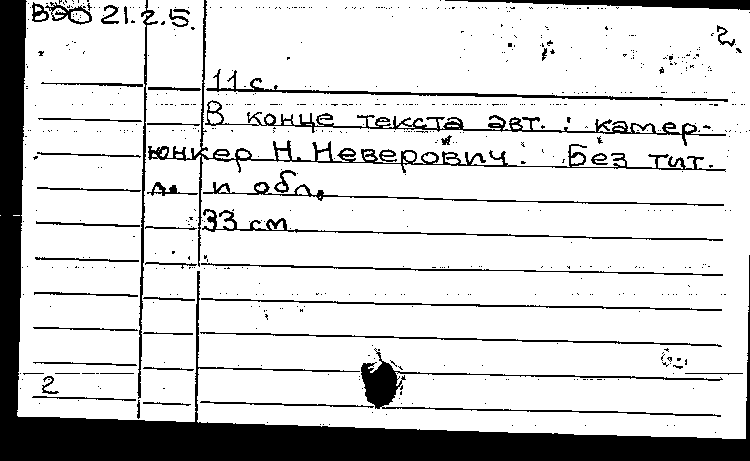 ВЭО 21.2.5.
2.
11 с.
В конце текста авт.: камер-
юнкер Н. Неверович. Без тит.
л. и обл.
33 см.
2